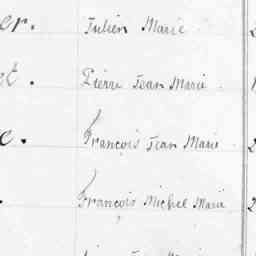 er. Julien Marie
et. Pierre Jean Marie
e. François Jean Marie
François Michel Marie
Jean Marie